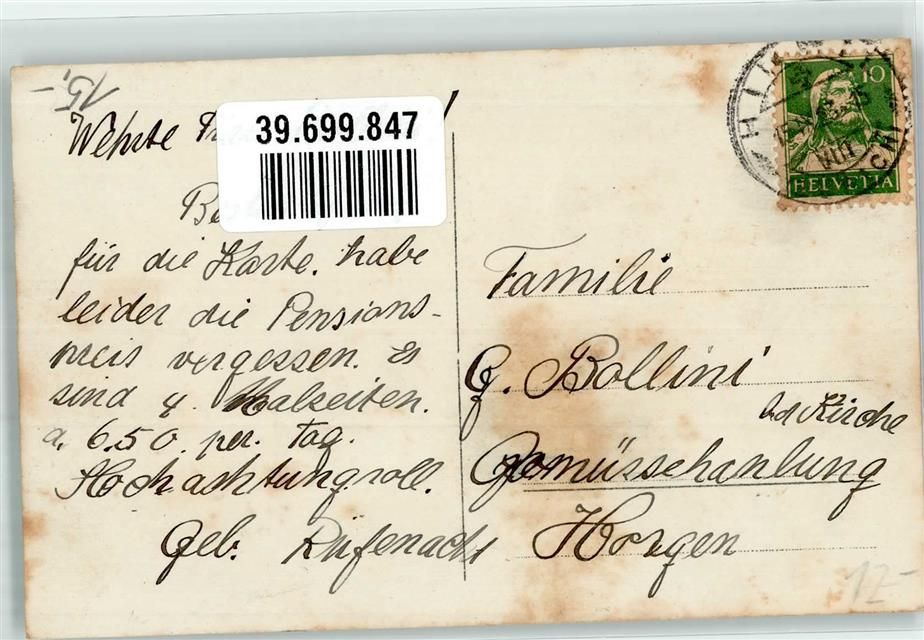 15,-
Wehrte
39.699.847
für die Karte. habe
leider die Pensions-
preis vergessen. Es
sind 4. Malzeiten.
a. 6.50. per. Tag.
Hochachtungvoll.
Geb. Rüfenacht
10
HELVETIA
VIII
Familie
G. Bollini
bd Kirche
Gemüssehanlung
Horgen
17-